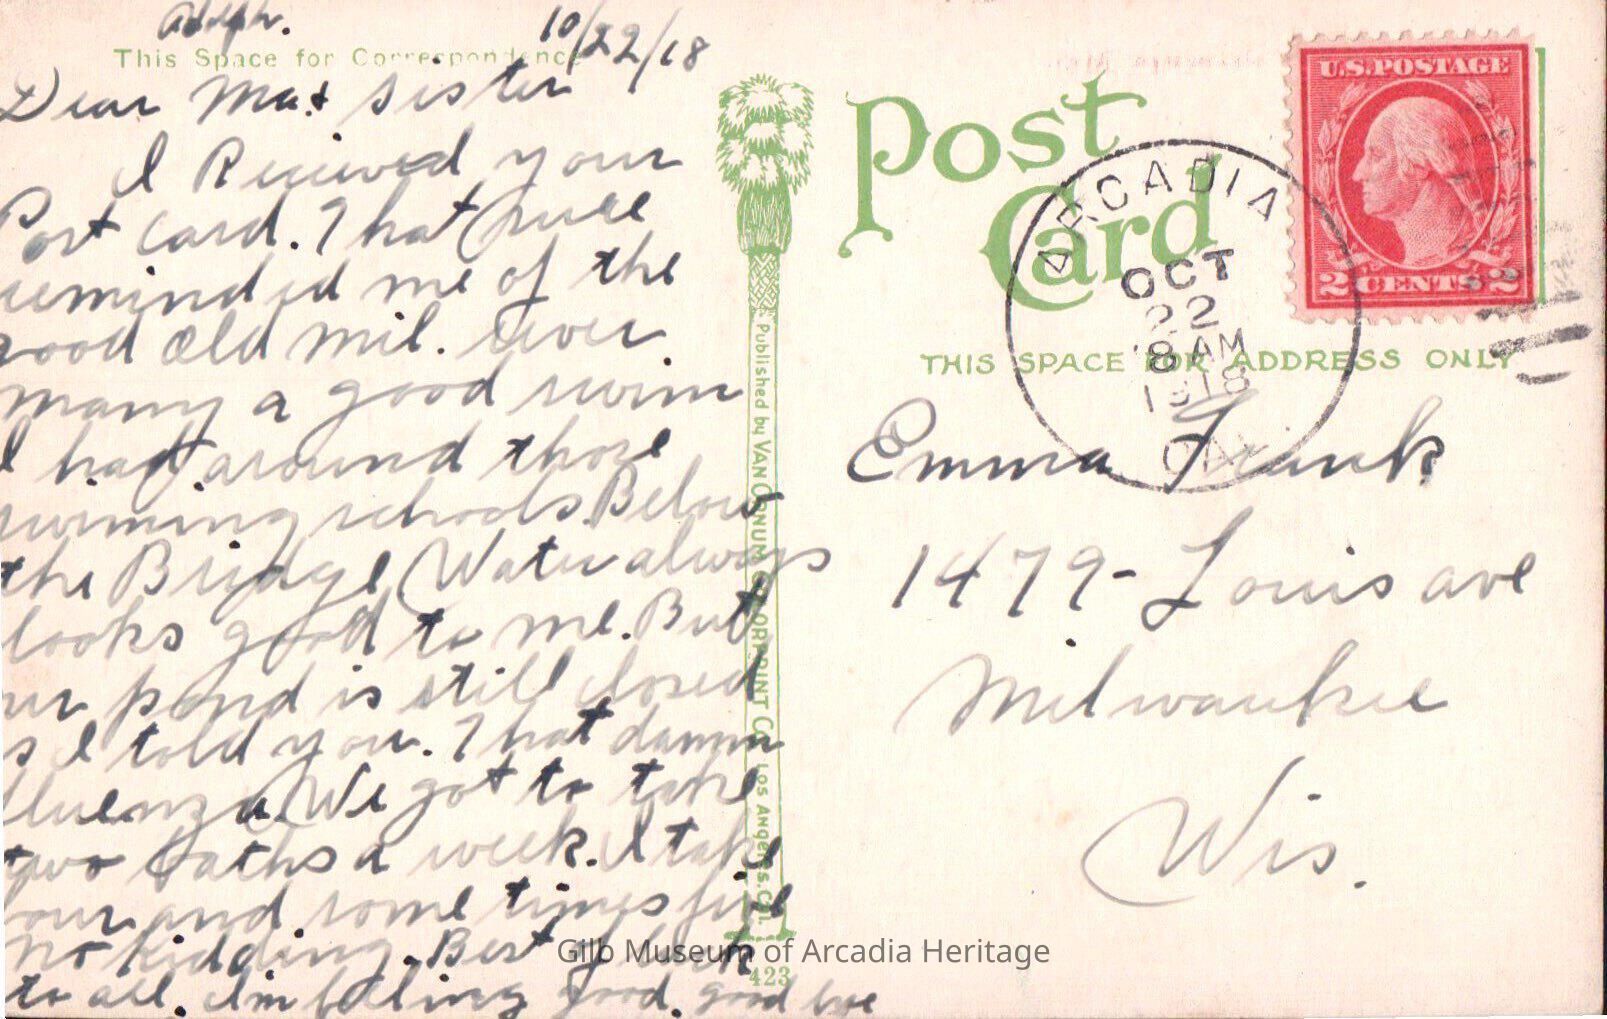 Adolph.
10/22/18
This Space for Correspondence
Dear Ma & Sister
I Recieved your
Post card. That sure
reminded me of the
good old Mil. river.
many a good swim
I had around those
swiming schools. Below
the Bridge. Water always
looks good to me. But
ur pond is still closed
s I told you. That damm
fluenza. We got to take
two baths a week. I take
four and some times five
no kidding. Best of luck
to all. Im feeling good. good bye
Published by VAN ORNUM COLORPRINT CO. LOS ANGELES. CAL.
423
Post
Card
U.S. POSTAGE
2 CENTS 2
ARCADIA
OCT
22
8 AM
1918
CAL.
THIS SPACE FOR ADDRESS ONLY
Emma Frank
1479- Louis ave
Milwaukee
Wis.
Gilb Museum of Arcadia Heritage